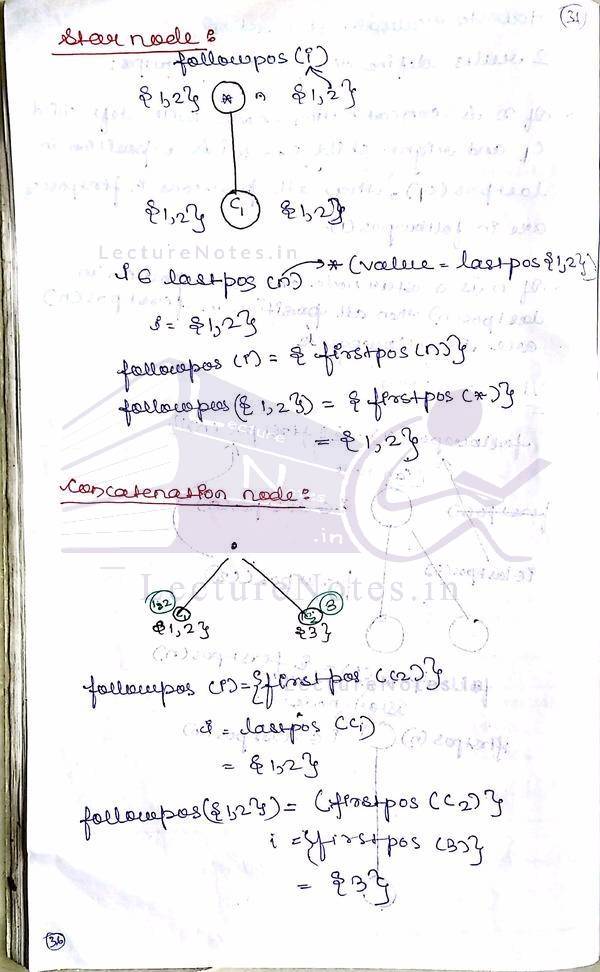 31
Star node :
followpos (i)
{1,2} * n {1,2}
{1,2} C1 {1,2}
LectureNotes.in
i ∈ lastpos (n) → * (value = lastpos {1,2})
i = {1,2}
followpos (i) = { firstpos (n)}
followpos ({1,2}) = { firstpos (*)}
= {1,2}
Concatenation node :
LectureNotes.in
1,2 C1 C2 3
{1,2} {3}
followpos (i) = {firstpos (C2)}
LectureNotes.in
i = lastpos (C1)
= {1,2}
followpos({1,2}) = (firstpos (C2)}
i = {firstpos (3)}
= {3}
36